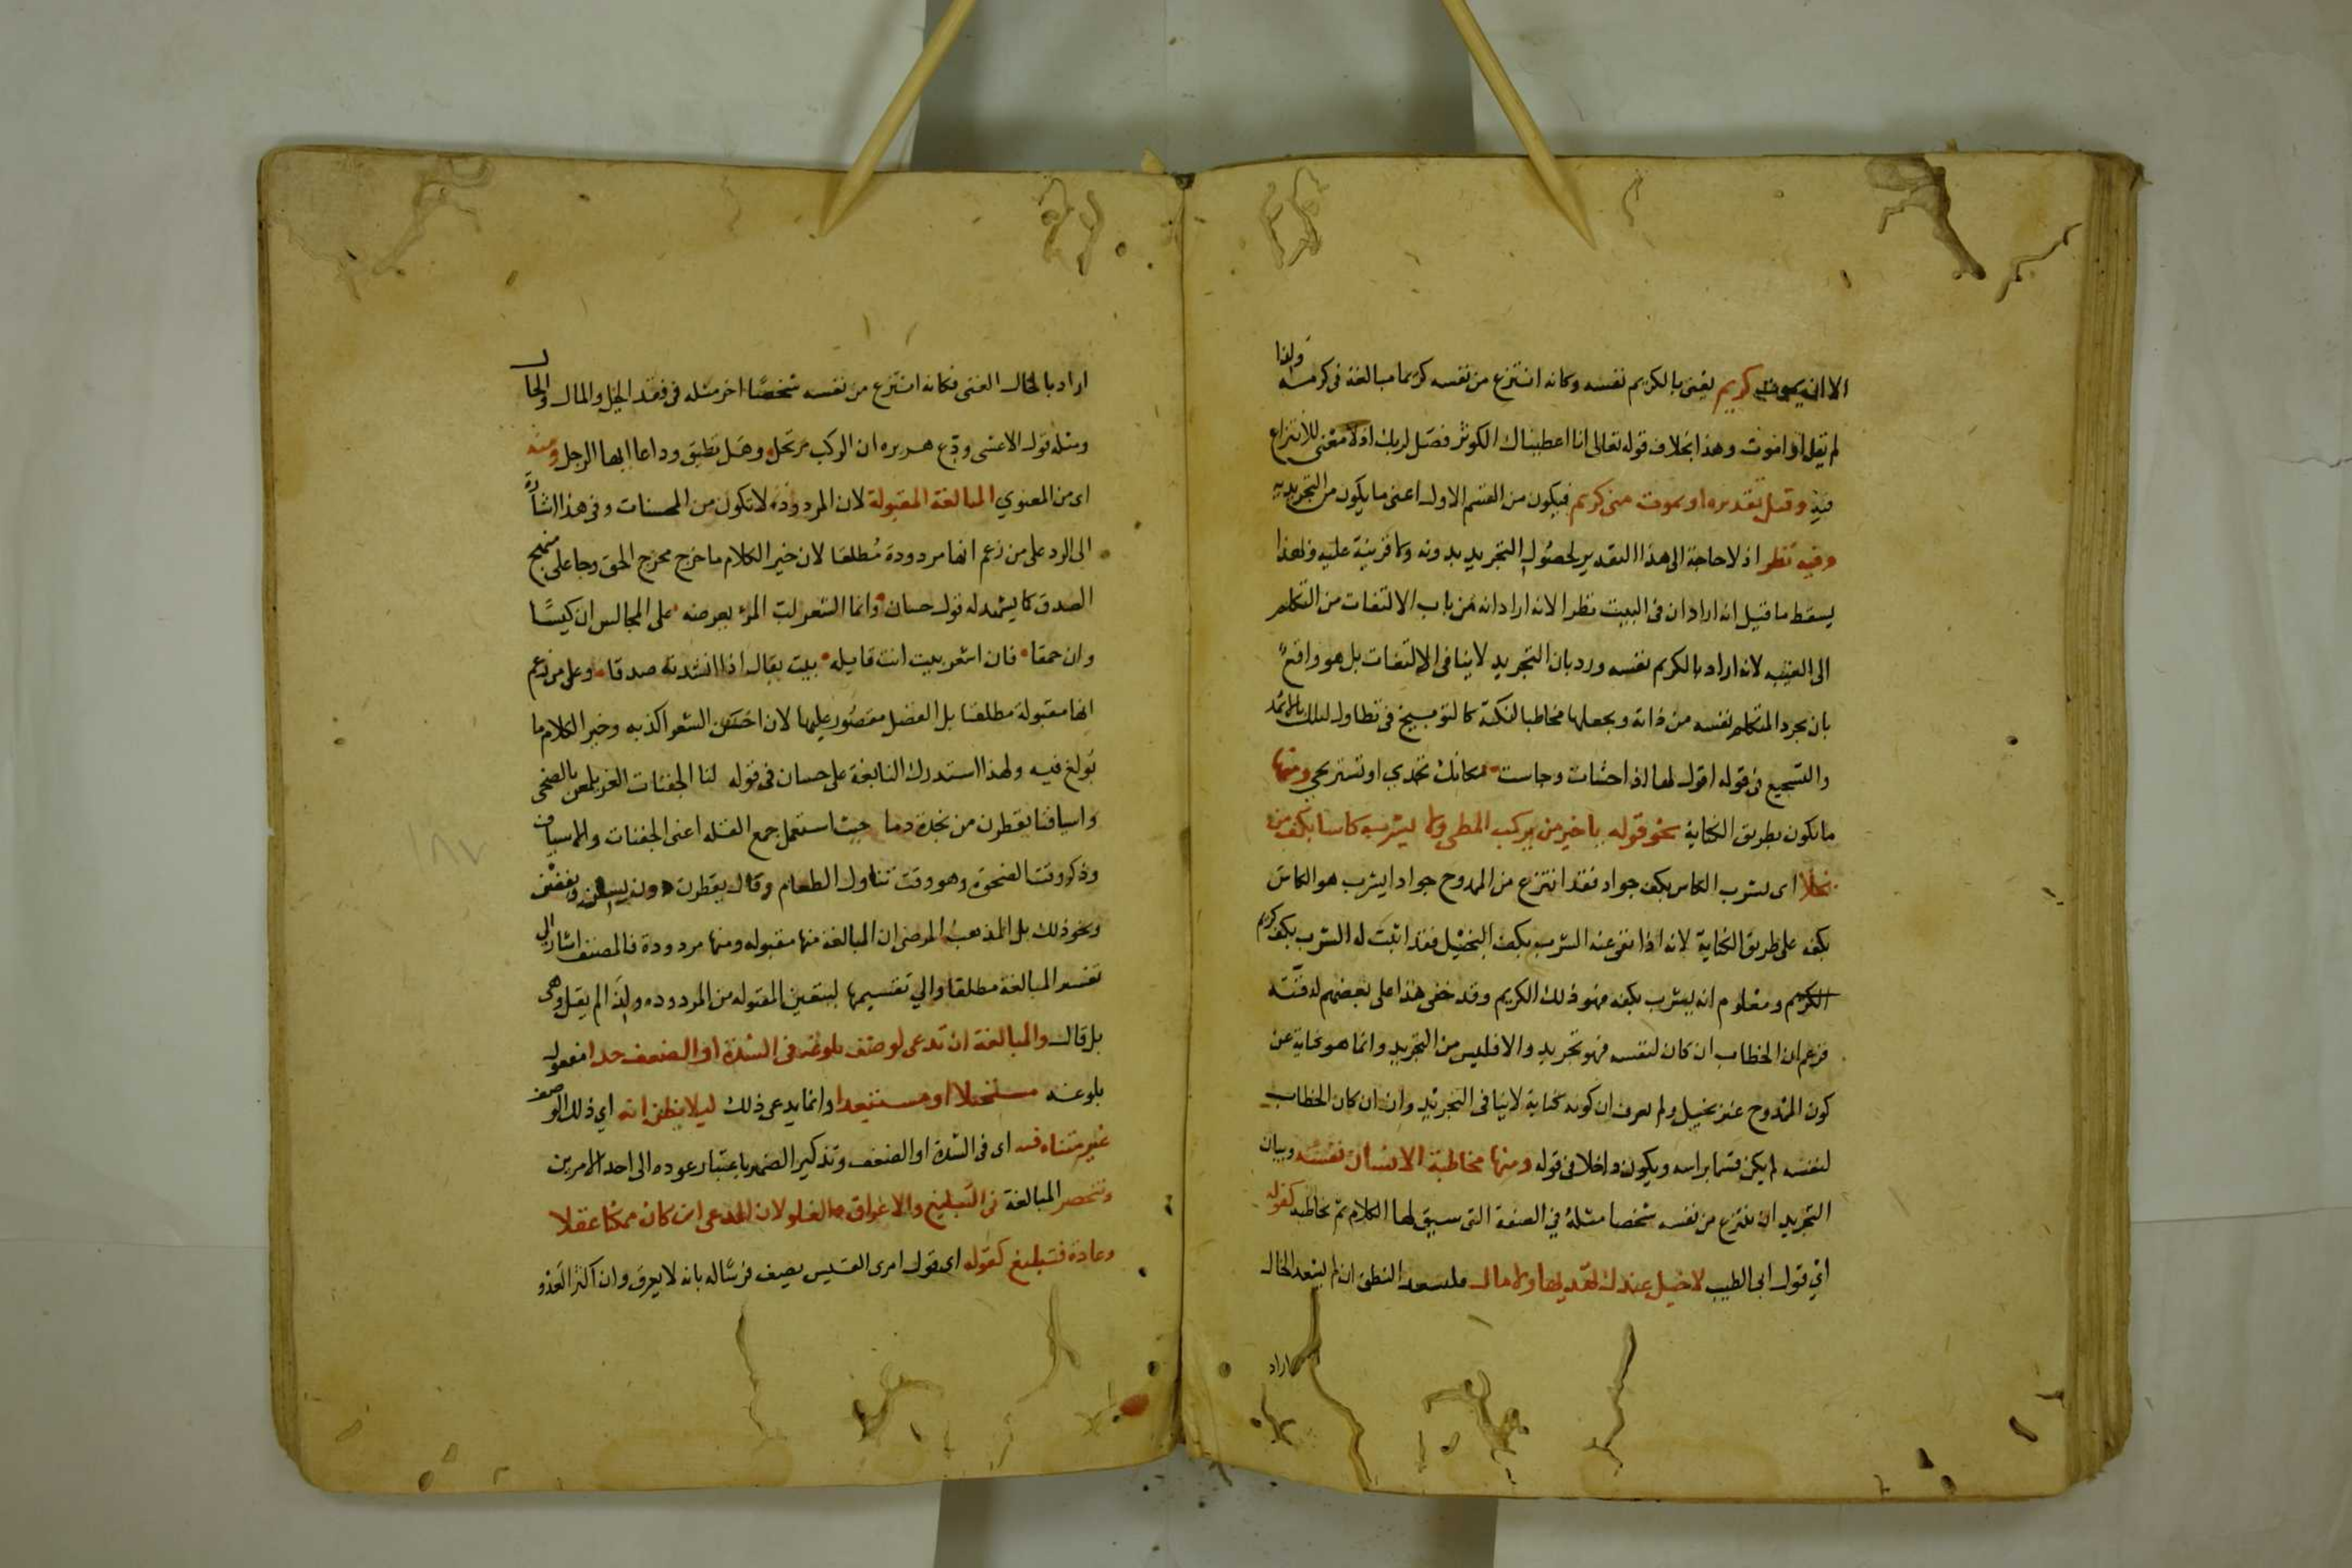 الا ان يموت كريم يعنى بالكريم نفسه وكانه انتزع من نفسه كريما مبالغة فى كرمه ولهذا
لم يقل او اموت وهذا بخلاف قوله تعالى انا اعطيناك الكوثر فصل لربك اذ لا معنى للانتزاع
فيه وقيل تقديره او يموت منى كريم فيكون من القسم الاول اعنى ما يكون من التجريديه
وفيه نظر اذ لا حاجة الى هذا التقدير لحصول التجريد بدونه ولا قرينة عليه ولهذا
يسقط ما قيل انه اراد ان فى البيت نظرا لانه اراد انه من باب الالتفات من التكلم
الى الغيبه لانه اراد بالكريم نفسه ورد بان التجريد لا ينافى الالتفات بل هو واقع
بان يجرد المتكلم نفسه من ذاته ويجعلها مخاطبا لنكتة كالتوبيخ فى تطاول ليلك بالاثمد
والتشجيع فى قوله اقول لها اذا جشات وجاست مكانك تحمدي او تستريحي ومنها
ما يكون بطريق الكناية نحو قوله يا خير من يركب المطى ولا يشرب كاسا بكف من
بخلا اى يشرب الكاس بكف جواد فقد انتزع من الممدوح جوادا يشرب هو الكاس
بكفه على طريق الكناية لانه اذا نفى عنه الشرب بكف البخيل فقد اثبت له الشرب بكف كريم
الكريم ومعلوم انه يشرب بكفه فهو ذلك الكريم وقد خفى هذا على بعضهم لدقته
فزعم ان الخطاب ان كان لنفسه فهو تجريد والا فليس من التجريد وانما هو كناية عن
كون الممدوح غير بخيل ولم يعرف ان كونه كناية لا ينافى التجريد وان ان كان الخطاب
لنفسه لم يكن قسما براسه ويكون داخلا فى قوله ومنها مخاطبة الانسان نفسه وبيان
التجريد ان ينتزع من نفسه شخصا مثله في الصفة التى سيق لها الكلام ثم يخاطبه كقوله
اي قول ابى الطيب لا خيل عندك تهديها ولا مال فليسعد النطق ان لم يسعد الحال
اراد
اراد بالحال الغنى فكانه انتزع من نفسه شخصا اخر مثله فى فقد الخيل والمال والحال
ومثله قول الاعشى ودع هريره ان الركب مرتحل وهل تطيق وداعا ايها الرجل ومنه
اى من المعنوي المبالغة المقبولة لان المردودة لا تكون من المحسنات وفى هذا اشارة
الى الرد على من زعم انها مردودة مطلقا لان خير الكلام ما خرج مخرج الحق وجا على منهج
الصدق كما يشهد له قول حسان وانما الشعر لب المرء يعرضه على المجالس ان كيسا
وان حمقا فان اشعر بيت انت قايله بيت يقال اذا انشدته صدقا وعلى من زعم
انها مقبولة مطلقا بل الفضل مقصور عليها لان احسن الشعر اكذبه وخير الكلام ما
بولغ فيه ولهذا استدرك النابغة على حسان فى قوله لنا الجفنات الغر يلمعن بالضحى
واسيافنا يقطرن من نجدة دما حيث استعمل جمع القله اعنى الجفنات والاسياف
وذكر وقت الضحوة وهو وقت تناول الطعام وقال يقطرن دون يسلن ويفضن
ونحو ذلك بل المذهب المرضى ان المبالغة منها مقبوله ومنها مردودة فالمصنف اشار الى
تفسير المبالغة مطلقا والي تقسيمها ليتعين المقبوله من المردوده ولذا لم يقل وهى
بل قال والمبالغة ان تدعى لوصف بلوغه فى الشدة او الضعف حدا مفعول
بلوغه مستحيلا او مستبعدا وانما يدعى ذلك ليلا يظن انه اي ذلك الوصف
غير متناه فيه اى فى الشدة او الضعف وتذكير الضمير باعتبار عوده الى احد الامرين
وتنحصر المبالغة فى التبليغ والاغراق والغلو لان المدعى ان كان ممكنا عقلا
وعادة فتبليغ كقوله اى قول امرى القيس يصيف فرسا له بانه لا يعرق وان اكثر العدو